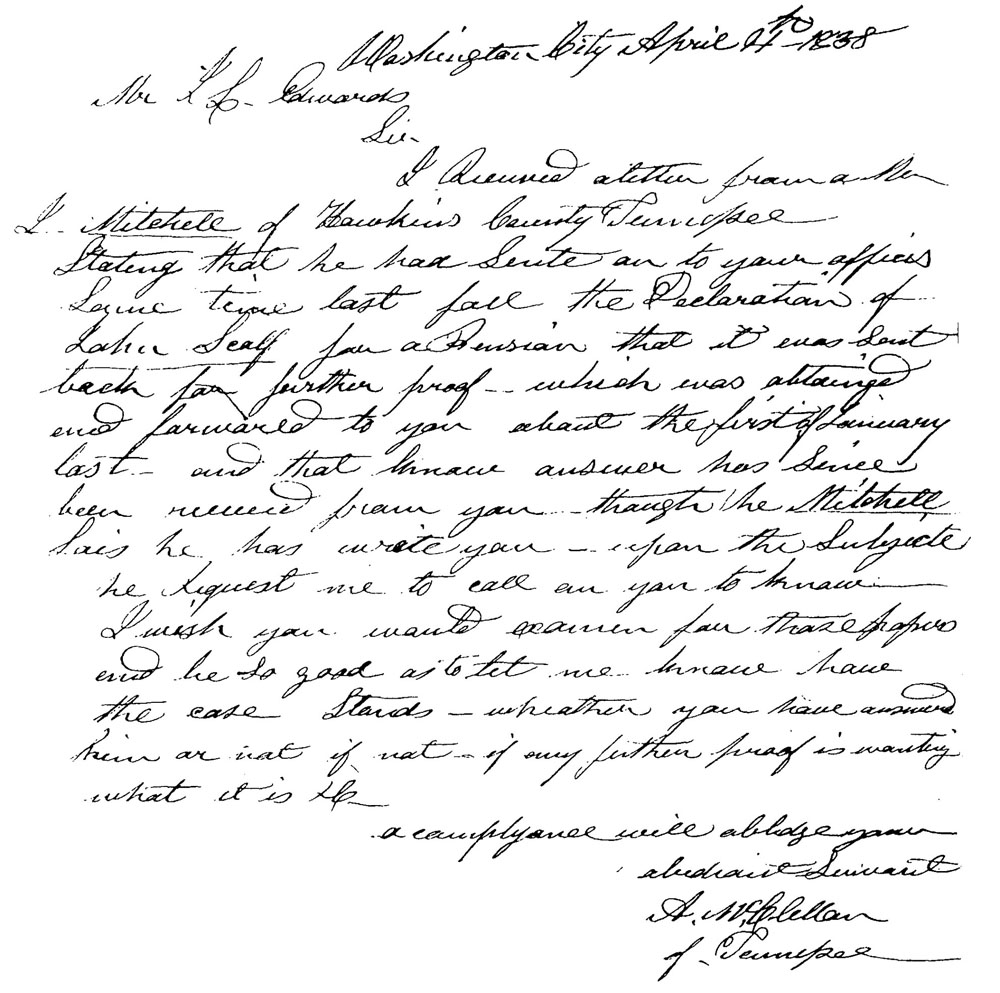 Washington City April 4th 1838
Mr J L Edwards
Sir
I Received a letter from a Mr
L. Mitchell of Hawkins County Tennessee
Stating that he had Sente on to your offices
Some time last fall the Declaration of
John Scalf for a Pension that it was Sent
back for further proof - which was obtained
and forwared to you about the first of January
last - and that know answer has Since
been received from you - though he Mitchell
Sais he has wrote you - upon the Subjecte
he Request me to call on you to know
I wish you would examen for those papers
and be So good as to let me know how
the case Stands - wheather you have answerd
him or not if not - if any futher proof is wanting
what it is &c
a complyance will oblidge your
obediant Servant
A. McClellan
of Tennessee